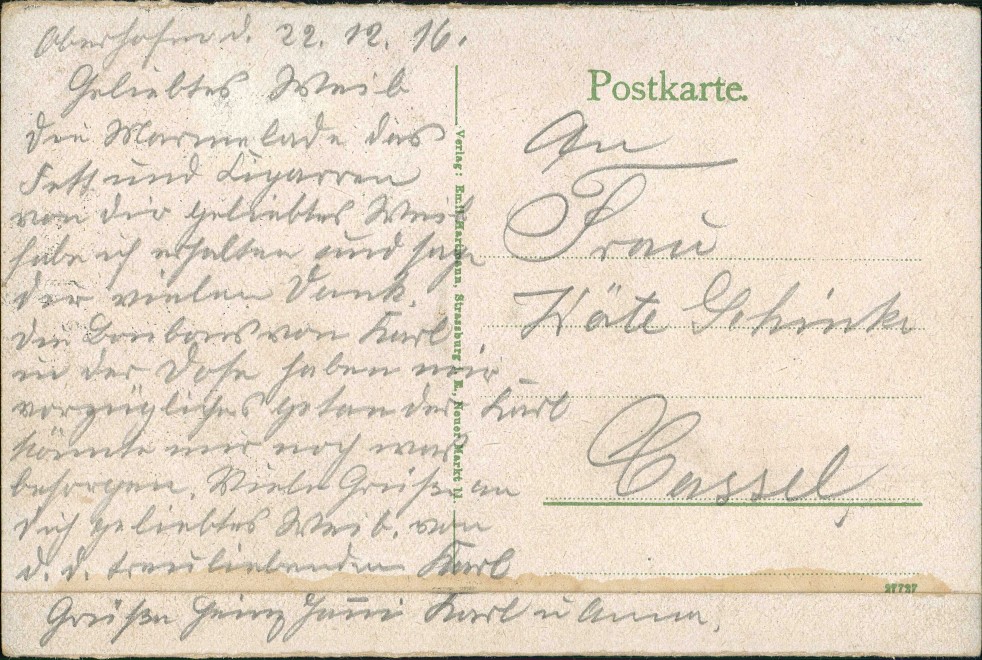 Oberhofen d. 22. 12. 16.
Geliebtes Weib
die Marmelade das
Fett und Cigarren
von dir geliebtes Weib
habe ich erhalten und sage
der vielen Dank.
die Bonbons von Karl
in der Dose haben mir
vorzügliches getan der Karl
könnte mir noch was
besorgen. Viele Grüße an
dich geliebtes Weib. von
d. d. treuliebenden Karl
Grüße Heinz Karl u Anna.
Postkarte.
An
Frau
Käte Schinke
Cassel
Verlag: Emil Hartmann, Strassburg i. E., Neuer Markt 11
27727